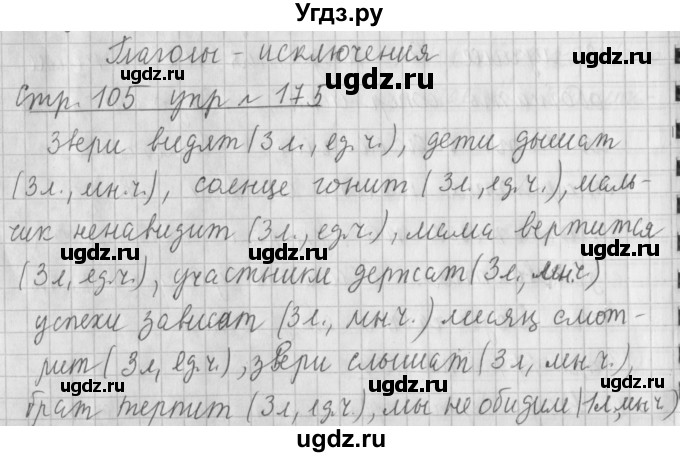 Угдз.ру
Глаголы - исключения
ugdz.ru ugdz.ru
Стр. 105 упр № 175
Звери видят (3 л., ед.ч.), дети дышат
ugdz.ru
(3л., мн.ч.), солнце гонит (3л., ед.ч.), маль-
ugdz.ru ugdz.ru
чик ненавидит (3л., ед.ч.), мама вертится
ugdz.ru ugdz.ru
(3л, ед.ч.), участники держат (3л, мн.ч)
ugdz.ru
успехи зависят (3л., мн.ч.) месяц смот-
ugdz.ru ugdz.ru
рит (3л, ед.ч.), звери слышат (3л, мн.ч.),
ugdz.ru ugdz.ru
брат терпит (3л, ед.ч.), мы не обидим (1л, мн.ч)
ugdz.ru